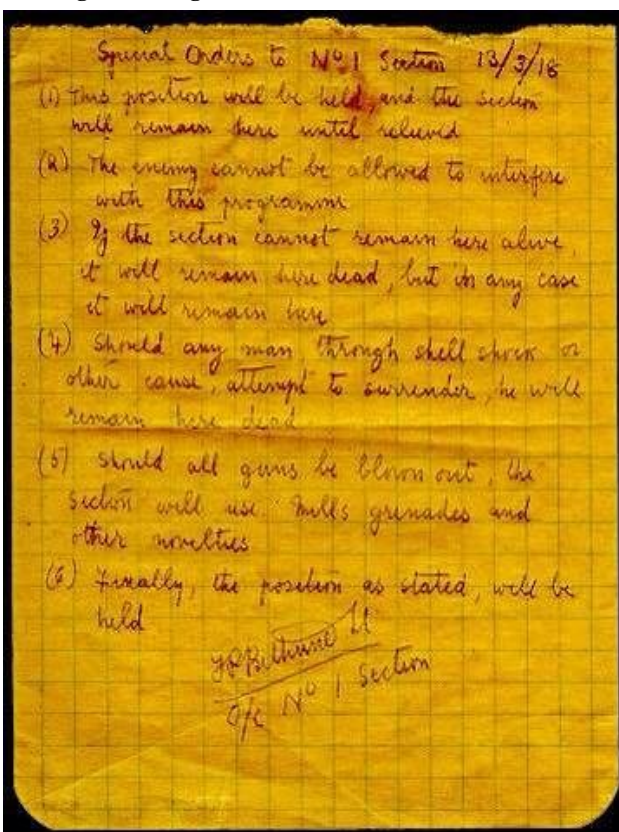 Special Orders to No 1 Section 13/3/18
(1) This position will be held, and the section
will remain here until relieved
(2) The enemy cannot be allowed to interfere
with this programme
(3) If the section cannot remain here alive,
it will remain here dead, but in any case
it will remain here
(4) Should any man, through shell shock or
other cause, attempt to surrender, he will
remain here dead
(5) Should all guns be blown out, the
section will use Mills grenades and
other novelties
(6) Finally, the position as stated, will be
held
F P Bethune Lt
O/C No 1 Section